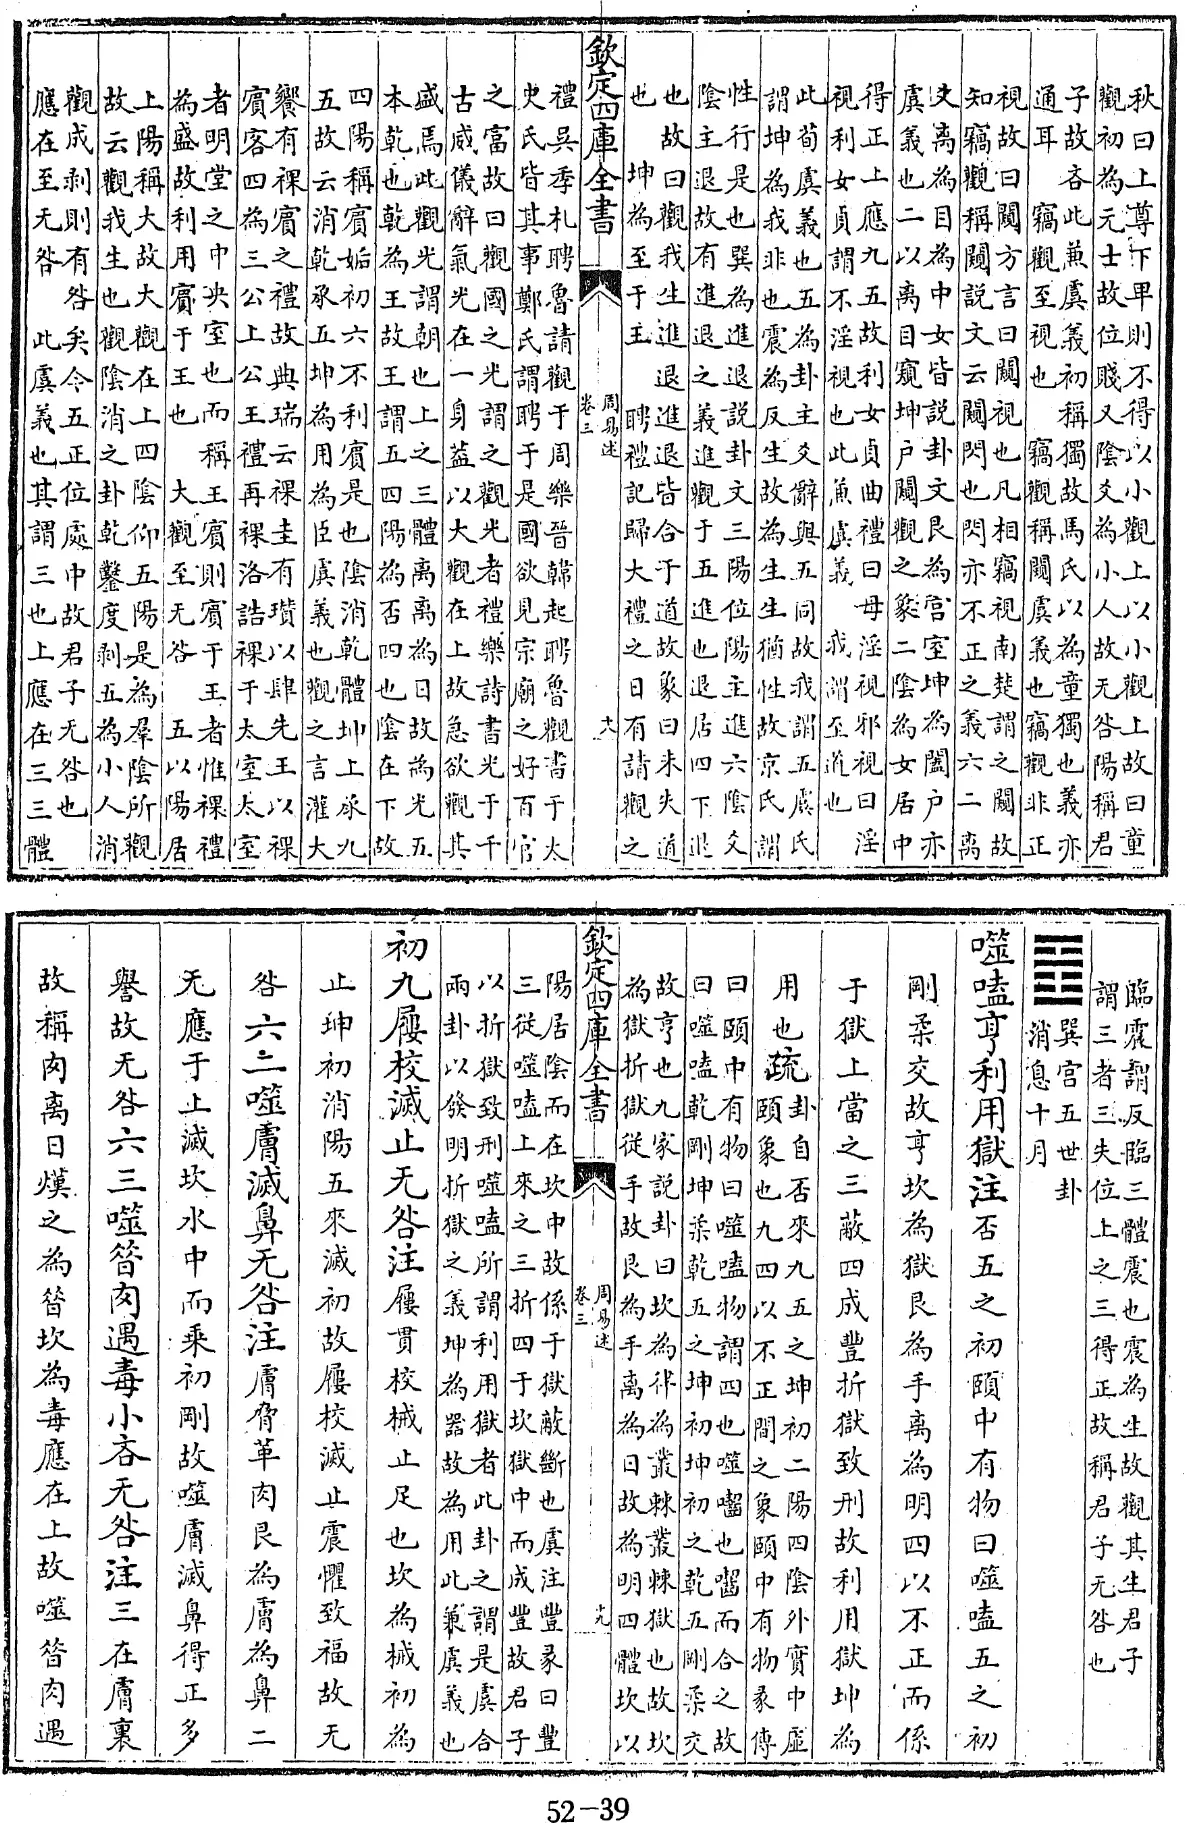 秋曰上尊下卑則不得以小觀上以小觀上故曰童
觀初為元士故位賤又陰爻為小人故无咎陽稱君
子故吝此兼虞義初稱獨故馬氏以為童獨也義亦
通耳　竊觀至視也　竊觀稱闚虞義也竊觀非正
視故曰闚方言曰闚視也凡相竊視南楚謂之闚故
知竊觀稱闚説文云闚閃也閃亦不正之義六二离
爻离為目為中女皆説卦文艮為宫室坤為闔户亦
虞義也二以离目窺坤户闚觀之象二陰為女居中
得正上應九五故利女貞曲禮曰毋淫視邪視曰淫
視利女貞謂不淫視也此兼虞義　我謂至道也
此荀虞義也五為卦主爻辭與五同故我謂五虞氏
謂坤為我非也震為反生故為生生猶性故京氏謂
性行是也巽為進退説卦文三陽位陽主進六陰爻
陰主退故有進退之義進觀于五進也退居四下退
也故曰觀我生進退進退皆合于道故象曰未失道
也　坤為至于王　聘禮記歸大禮之日有請觀之
欽定四庫全書
周易述
卷三
十八
禮吳季札聘魯請觀于周樂晉韓起聘魯觀書于太
史氏皆其事鄭氏謂聘于是國欲見宗廟之好百官
之富故曰觀國之光謂之觀光者禮樂詩書光于千
古威儀辭氣光在一身益以大觀在上故急欲觀其
盛焉此觀光謂朝也上之三體离离為日故為光五
本乾也乾為王故王謂五四陽為否四也陰在下故
四陽稱賓姤初六不利賓是也陰消乾體坤上承九
五故云消乾承五坤為用為臣虞義也觀之言灌大
饗有祼賓之禮故典瑞云祼圭有瓚以肆先王以祼
賓客四為三公上公王禮再祼洛誥祼于太室太室
者明堂之中央室也而稱王賓則賓于王者惟祼禮
為盛故利用賓于王也　大觀至无咎　五以陽居
上陽稱大故大觀在上四陰仰五陽是為羣陰所觀
故云觀我生也觀陰消之卦乾鑿度剥五為小人消
觀成剥則有咎矣今五正位處中故君子无咎也
應在至无咎　此虞義也其謂三也上應在三三體
臨震謂反臨三體震也震為生故觀其生君子
謂三者三失位上之三得正故稱君子无咎也
䷔
巽宫五世卦
消息十月
噬嗑亨利用獄注否五之初頤中有物曰噬嗑五之初
剛柔交故亨坎為獄艮為手离為明四以不正而係
于獄上當之三蔽四成豐折獄致刑故利用獄坤為
用也疏
卦自否來九五之坤初二陽四陰外實中虛
頤象也九四以不正間之象頤中有物彖傳
曰頤中有物曰噬嗑物謂四也噬囓也囓而合之故
曰噬嗑乾剛坤柔乾五之坤初坤初之乾五剛柔交
故亨也九家説卦曰坎為律為叢棘叢棘獄也故坎
為獄折獄從手故艮為手离為日故為明四體坎以
欽定四庫全書
周易述
卷三
十九
陽居陰而在坎中故係于獄蔽斷也虞注豐彖曰豐
三從噬嗑上來之三折四于坎獄中而成豐故君子
以折獄致刑噬嗑所謂利用獄者此卦之謂是虞合
兩卦以發明折獄之義坤為器故為用此兼虞義也
初九屨校滅止无咎注屨貫校械止足也坎為械初為
止坤初消陽五來滅初故屨校滅止震懼致福故无
咎六二噬膚滅鼻无咎注膚脅革肉艮為膚為鼻二
无應于上滅坎水中而乘初剛故噬膚滅鼻得正多
譽故无咎六三噬㫺肉遇毒小吝无咎注三在膚裏
故稱肉离日熯之為㫺坎為毒應在上故噬㫺肉遇
52-39